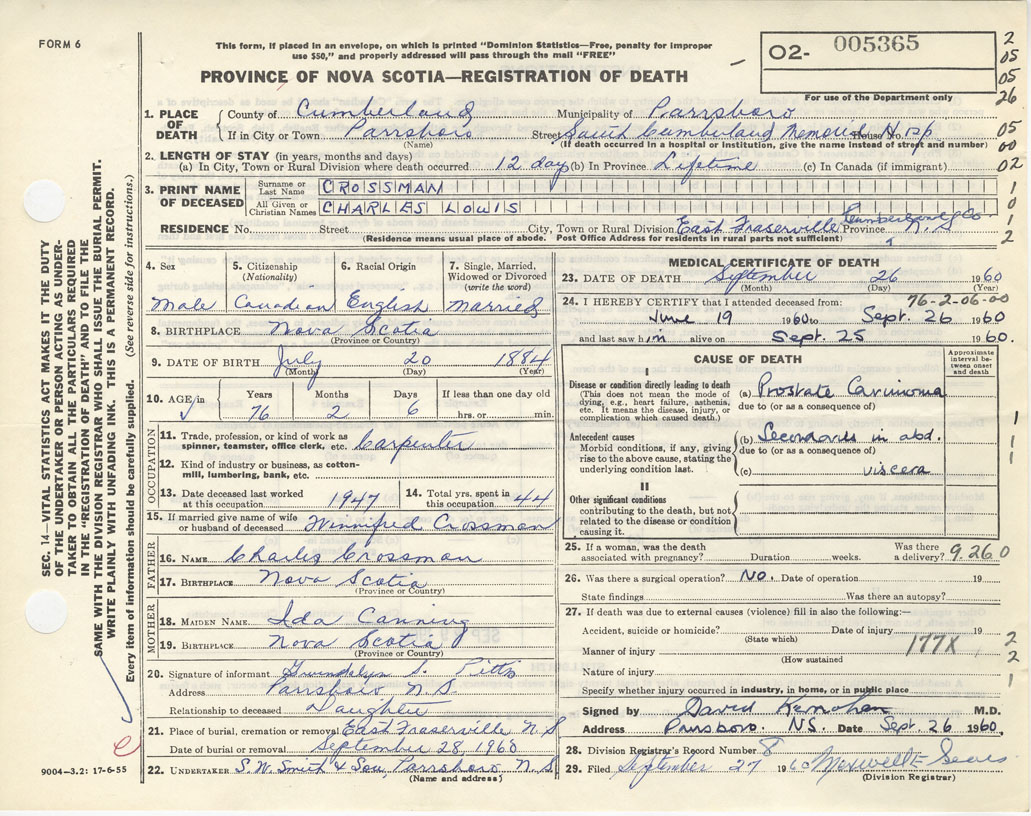 FORM 6
This form, if placed in an envelope, on which is printed "Dominion Statistics—Free, penalty for improper
use $50," and properly addressed will pass through the mail "FREE"
PROVINCE OF NOVA SCOTIA—REGISTRATION OF DEATH
O2- 005365
For use of the Department only
2
05
05
26
05
00
02
1
0
1
2
1. PLACE OF DEATH County of Cumberland Municipality of Parrsboro
If in City or Town Parrsboro Street South Cumberland Memorial House No. Hosp
(Name) (If death occurred in a hospital or institution, give the name instead of street and number)
2. LENGTH OF STAY (in years, months and days)
(a) In City, Town or Rural Division where death occurred 12 day (b) In Province Lifetime (c) In Canada (if immigrant)
3. PRINT NAME OF DECEASED Surname or Last Name CROSSMAN
All Given or Christian Names CHARLES LOUIS
RESIDENCE No. Street City, Town or Rural Division East Fraserville Cumberland Co Province N.S
(Residence means usual place of abode. Post Office Address for residents in rural parts not sufficient)
4. Sex 5. Citizenship (Nationality) 6. Racial Origin 7. Single, Married, Widowed or Divorced (write the word)
Male Canadian English Married
8. BIRTHPLACE Nova Scotia
(Province or Country)
9. DATE OF BIRTH July 20 1884
(Month) (Day) (Year)
10. AGE in Years Months Days If less than one day old
76 2 6 hrs. or min.
OCCUPATION
11. Trade, profession, or kind of work as spinner, teamster, office clerk, etc. Carpenter
12. Kind of industry or business, as cotton-mill, lumbering, bank, etc.
13. Date deceased last worked at this occupation 1947 14. Total yrs. spent in this occupation 44
15. If married give name of wife or husband of deceased Winnifred Crossman
FATHER
16. NAME Charles Crossman
17. BIRTHPLACE Nova Scotia
(Province or Country)
MOTHER
18. MAIDEN NAME Ida Canning
19. BIRTHPLACE Nova Scotia
(Province or Country)
20. Signature of informant S. Pitts
Address Parrsboro N.S.
Relationship to deceased Daughter
21. Place of burial, cremation or removal East Fraserville N S
Date of burial or removal September 28, 1960
22. UNDERTAKER S.W. Smith & Son, Parrsboro, N S
(Name and address)
MEDICAL CERTIFICATE OF DEATH
23. DATE OF DEATH September 26 1960
(Month) (Day) (Year)
76-2-06-00
24. I HEREBY CERTIFY that I attended deceased from:
June 19 1960 to Sept. 26 1960
and last saw him alive on Sept. 25 1960.
CAUSE OF DEATH
Approximate interval between onset and death
I
Disease or condition directly leading to death (a) Prostate Carcinoma
(This does not mean the mode of dying, e.g., heart failure, asthenia, etc. It means the disease, injury, or complication which caused death.)
due to (or as a consequence of)
Antecedent causes (b) Secondaries in abd.
Morbid conditions, if any, giving rise to the above cause, stating the underlying condition last.
due to (or as a consequence of)
(c) viscera
II
Other significant conditions contributing to the death, but not related to the disease or condition causing it.
1
1
1
25. If a woman, was the death associated with pregnancy? Duration weeks. Was there a delivery?
9.260
26. Was there a surgical operation? NO. Date of operation 19
State findings Was there an autopsy?
27. If death was due to external causes (violence) fill in also the following:—
Accident, suicide or homicide? Date of injury 19
(State which)
177X
Manner of injury
(How sustained)
Nature of injury
2
2
1
Specify whether injury occurred in industry, in home, or in public place
Signed by David M.D.
Address Parrsboro. NS. Date Sept. 26 1960
28. Division Registrar's Record Number 8
29. Filed September 27 1960
(Division Registrar)
SEC. 14—VITAL STATISTICS ACT MAKES IT THE DUTY
OF THE UNDERTAKER OR PERSON ACTING AS UNDER-
TAKER TO OBTAIN ALL THE PARTICULARS REQUIRED
IN THE "REGISTRATION OF DEATH" AND TO FILE THE
SAME WITH THE DIVISION REGISTRAR WHO SHALL ISSUE THE BURIAL PERMIT.
WRITE PLAINLY WITH UNFADING INK. THIS IS A PERMANENT RECORD.
Every item of information should be carefully supplied. (See reverse side for instructions.)
9004-3.2: 17-6-55